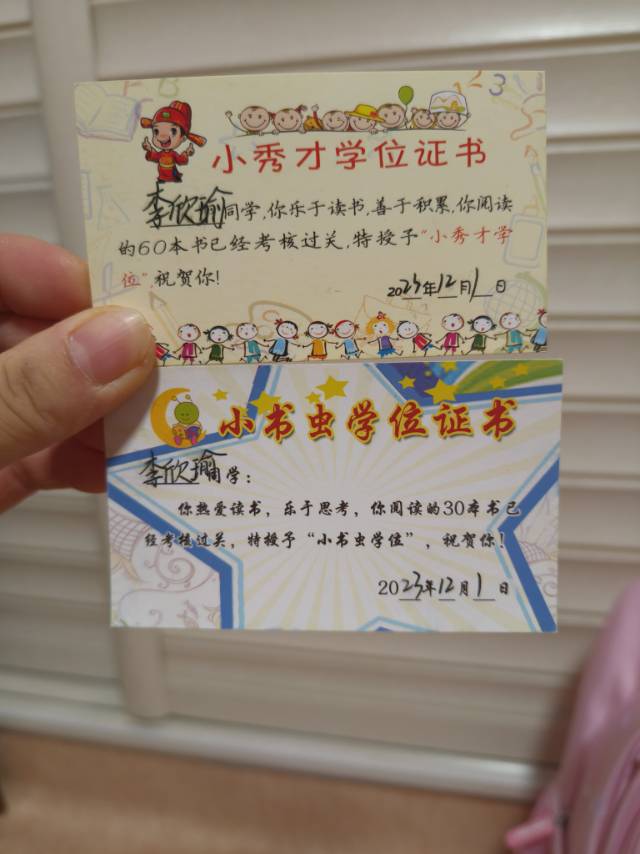 小秀才学位证书
李欣瑜同学,你乐于读书,善于积累,你阅读
的60本书已经考核过关,特授予“小秀才学
位”,祝贺你!
2023年12月1日
小书虫学位证书
李欣瑜同学:
你热爱读书,乐于思考,你阅读的30本书已
经考核过关,特授予“小书虫学位”,祝贺你!
2023年12月1日